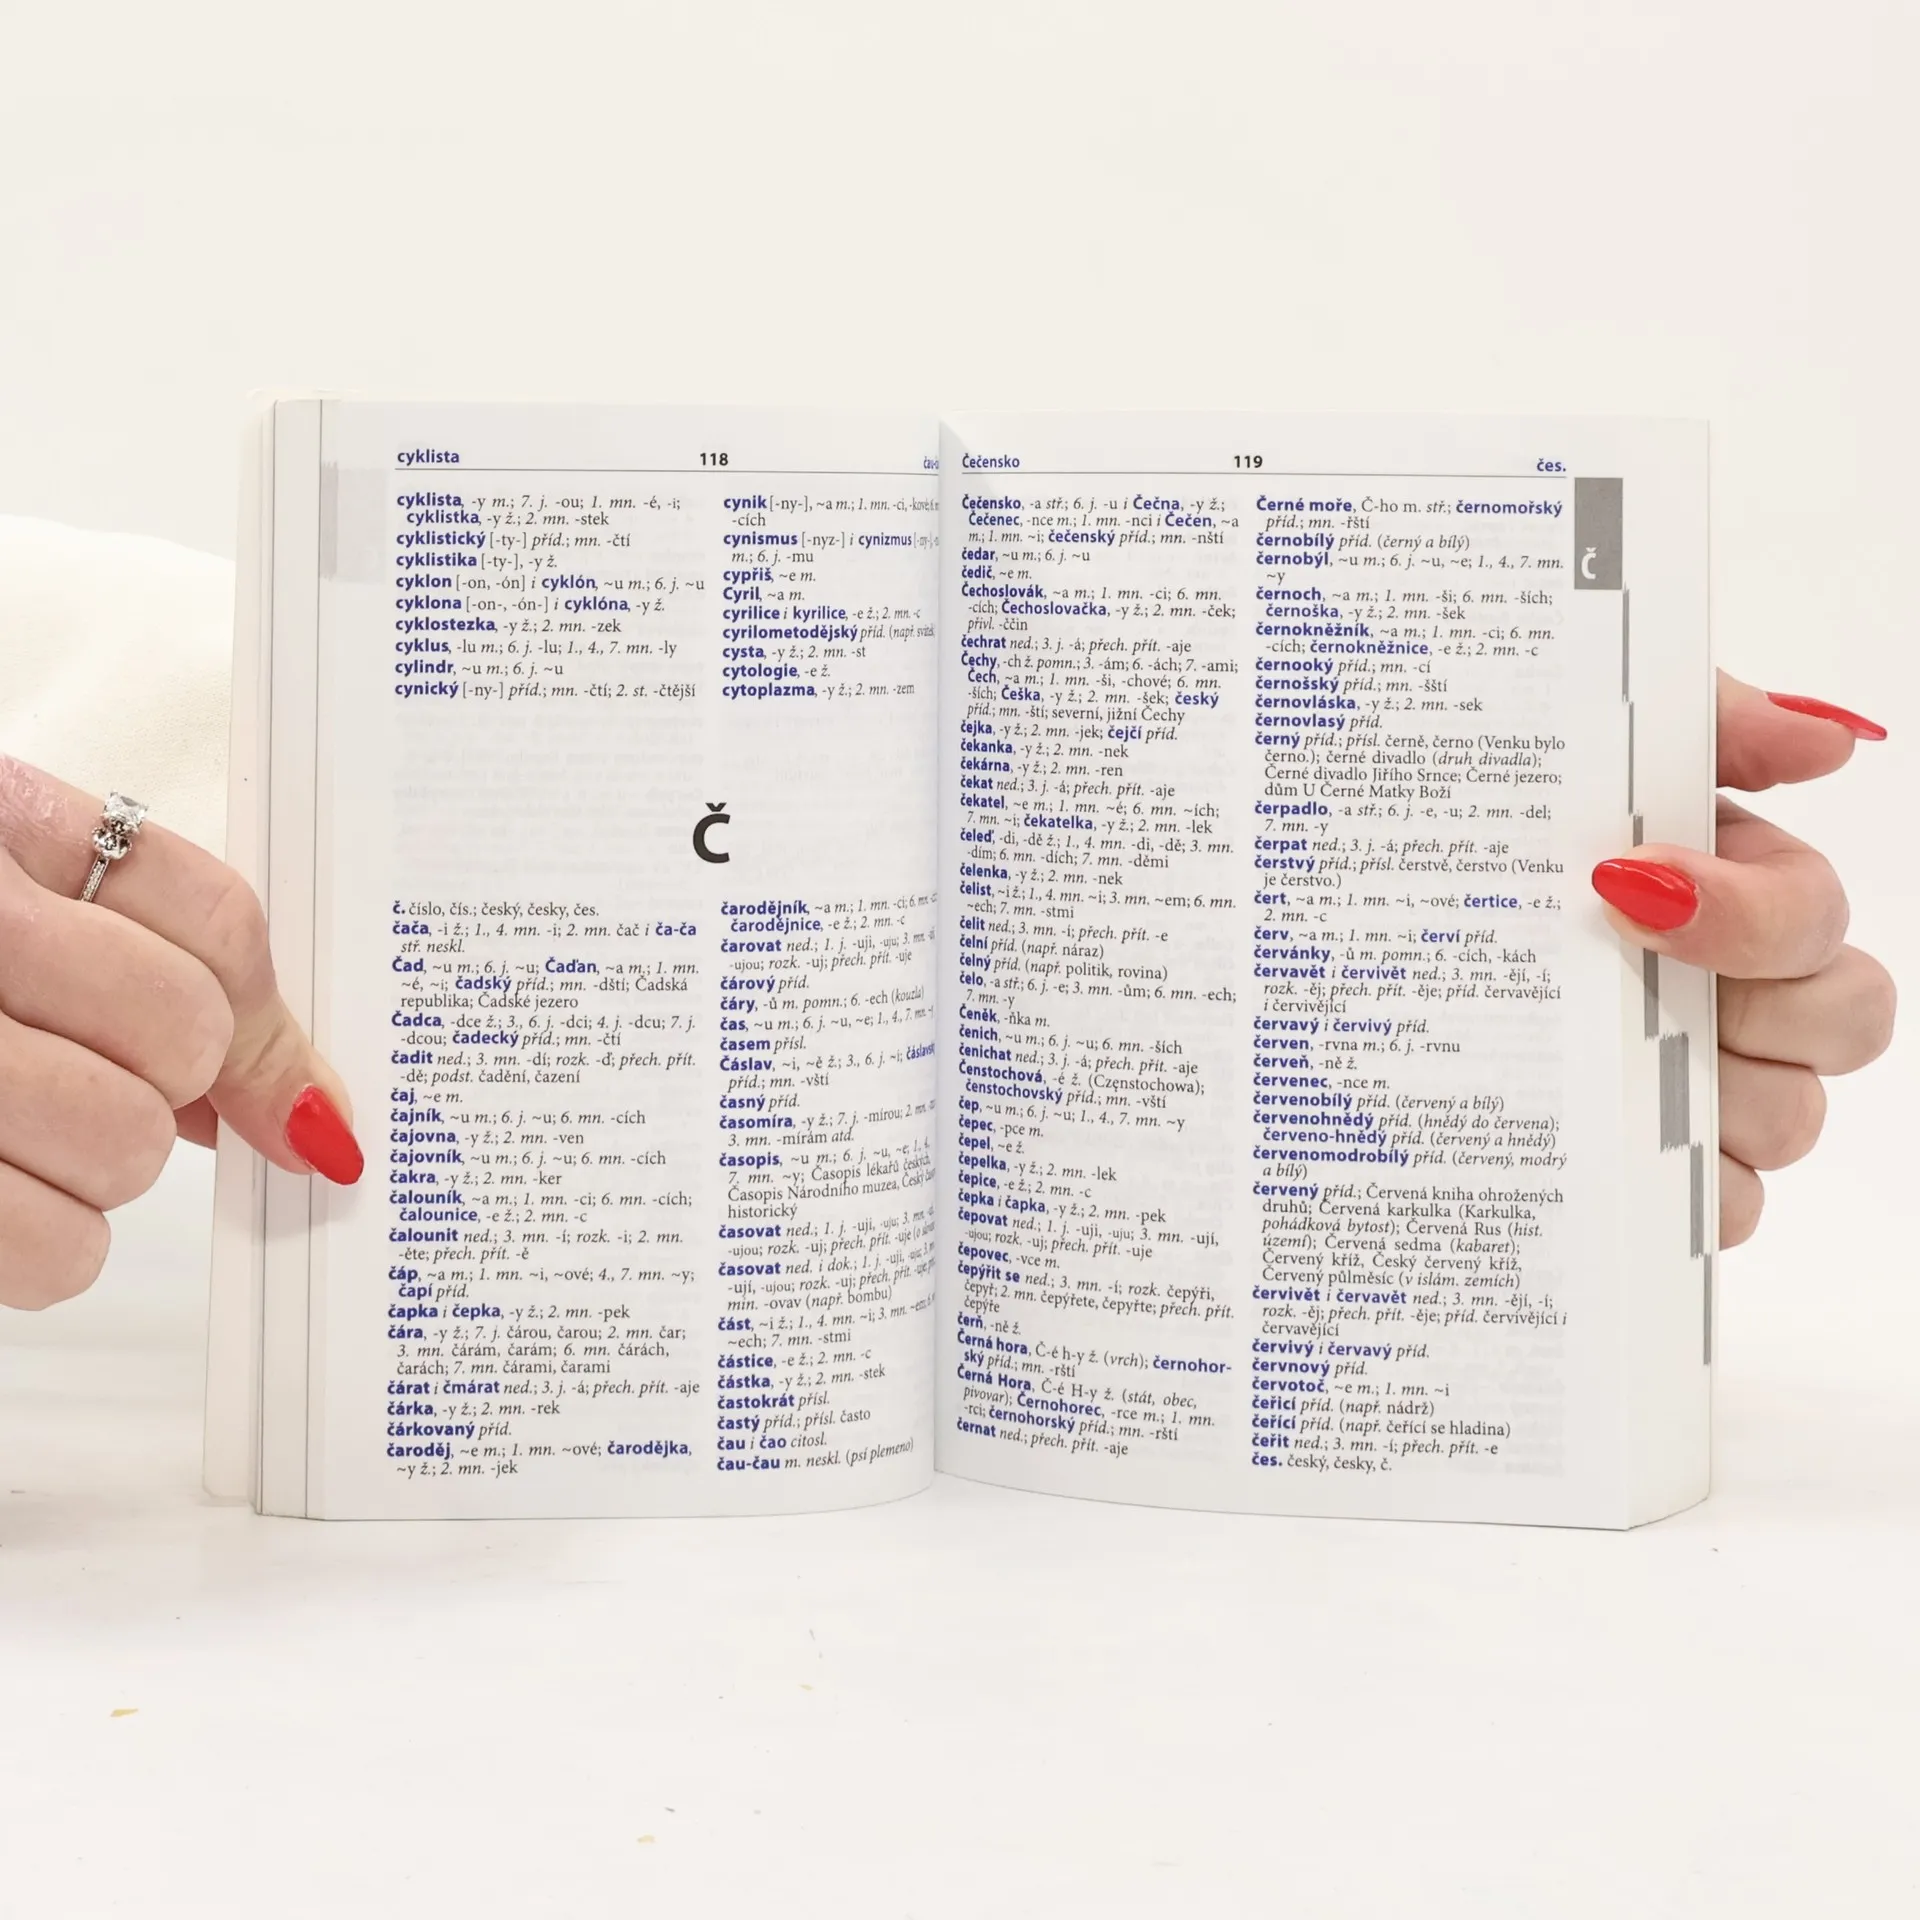 cyklista
118
cyklista, -y m.; 7. j. -ou; 1. mn. -é, -i;
cyklistka, -y ž.; 2. mn. -stek
cyklistický [-ty-] příd.; mn. -čtí
cyklistika [-ty-], -y ž.
cyklon [-on, -ón] i cyklón, ~u m.; 6. j. ~u
cyklona [-on-, -ón-] i cyklóna, -y ž.
cyklostezka, -y ž.; 2. mn. -zek
cyklus, -lu m.; 6. j. -lu; 1., 4., 7. mn. -ly
cylindr, ~u m.; 6. j. ~u
cynický [-ny-] příd.; mn. -čtí; 2. st. -čtější
cynik [-ny-], ~a m.; 1. mn. -ci, -kové; 6. m
-cích
cynismus [-nyz-] i cynizmus [-ny-],
m.; 6. j. -mu
cypřiš, ~e m.
Cyril, ~a m.
cyrilice i kyrilice, -e ž.; 2. mn. -c
cyrilometodějský příd. (např. svátek)
cysta, -y ž.; 2. mn. -st
cytologie, -e ž.
cytoplazma, -y ž.; 2. mn. -zem
Č
č. číslo, čís.; český, česky, čes.
čača, -i ž.; 1., 4. mn. -i; 2. mn. čač i ča-ča
stř. neskl.
Čad, ~u m.; 6. j. ~u; Čaďan, ~a m.; 1. mn.
~é, ~i; čadský příd.; mn. -dští; Čadská
republika; Čadské jezero
Čadca, -dce ž.; 3., 6. j. -dci; 4. j. -dcu; 7. j.
-dcou; čadecký příd.; mn. -čtí
čadit ned.; 3. mn. -dí; rozk. -ď; přech. přít.
-dě; podst. čadění, čazení
čaj, ~e m.
čajník, ~u m.; 6. j. ~u; 6. mn. -cích
čajovna, -y ž.; 2. mn. -ven
čajovník, ~u m.; 6. j. ~u; 6. mn. -cích
čakra, -y ž.; 2. mn. -ker
čalouník, ~a m.; 1. mn. -ci; 6. mn. -cích;
čalounice, -e ž.; 2. mn. -c
čalounit ned.; 3. mn. -í; rozk. -i; 2. mn.
-ěte; přech. přít. -ě
čáp, ~a m.; 1. mn. ~i, ~ové; 4., 7. mn. ~y;
čapí příd.
čapka i čepka, -y ž.; 2. mn. -pek
čára, -y ž.; 7. j. čárou, čarou; 2. mn. čar;
3. mn. čárám, čarám; 6. mn. čárách,
čarách; 7. mn. čárami, čarami
čárat i čmárat ned.; 3. j. -á; přech. přít. -aje
čárka, -y ž.; 2. mn. -rek
čárkovaný příd.
čaroděj, ~e m.; 1. mn. ~ové; čarodějka,
~y ž.; 2. mn. -jek
čarodějník, ~a m.; 1. mn. -ci; 6. mn.
čarodějnice, -e ž.; 2. mn. -c
čarovat ned.; 1. j. -uji, -uju; 3. mn.
-ujou; rozk. -uj; přech. přít. -uje
čárový příd.
čáry, -ů m. pomn.; 6. -ech (kouzla)
čas, ~u m.; 6. j. ~u, ~e; 1., 4., 7. mn.
časem přísl.
Čáslav, ~i, ~ě ž.; 3., 6. j. ~i; čáslavský
příd.; mn. -vští
časný příd.
časomíra, -y ž.; 7. j. -mírou; 2. mn.
3. mn. -mírám atd.
časopis, ~u m.; 6. j. ~u, ~e; 1., 4.,
7. mn. ~y; Časopis lékařů českých,
Časopis Národního muzea, Český časopis
historický
časovat ned.; 1. j. -uji, -uju; 3. mn.
-ujou; rozk. -uj; přech. přít. -uje
časovat ned. i dok.; 1. j. -uji, -uju; 3. mn.
-ují, -ujou; rozk. -uj; přech. přít. -uje,
min. -ovav (např. bombu)
část, ~i ž.; 1., 4. mn. ~i; 3. mn. ~em; 6. mn.
~ech; 7. mn. -stmi
částice, -e ž.; 2. mn. -c
částka, -y ž.; 2. mn. -stek
častokrát přísl.
častý příd.; přísl. často
čau i čao citosl.
čau-čau m. neskl. (psí plemeno)
Čečensko
119
čes.
Čečensko, -a stř.; 6. j. -u i Čečna, -y ž.;
Čečenec, -nce m.; 1. mn. -nci i Čečen, ~a
m.; 1. mn. ~i; čečenský příd.; mn. -nští
čedar, ~u m.; 6. j. ~u
čedič, ~e m.
Čechoslovák, ~a m.; 1. mn. -ci; 6. mn.
-cích; Čechoslovačka, -y ž.; 2. mn. -ček;
přivl. -ččin
čechrat ned.; 3. j. -á; přech. přít. -aje
Čechy, -ch ž. pomn.; 3. -ám; 6. -ách; 7. -ami;
Čech, ~a m.; 1. mn. -ši, -chové; 6. mn.
-ších; Češka, -y ž.; 2. mn. -šek; český
příd.; mn. -ští; severní, jižní Čechy
čejka, -y ž.; 2. mn. -jek; čejčí příd.
čekanka, -y ž.; 2. mn. -nek
čekárna, -y ž.; 2. mn. -ren
čekat ned.; 3. j. -á; přech. přít. -aje
čekatel, ~e m.; 1. mn. ~é; 6. mn. ~ích;
7. mn. ~i; čekatelka, -y ž.; 2. mn. -lek
čeleď, -di, -dě ž.; 1., 4. mn. -di, -dě; 3. mn.
-dím; 6. mn. -dích; 7. mn. -děmi
čelenka, -y ž.; 2. mn. -nek
čelist, ~i ž.; 1., 4. mn. ~i; 3. mn. ~em; 6. mn.
~ech; 7. mn. -stmi
čelit ned.; 3. mn. -í; přech. přít. -e
čelní příd. (např. náraz)
čelný příd. (např. politik, rovina)
čelo, -a stř.; 6. j. -e; 3. mn. -ům; 6. mn. -ech;
7. mn. -y
Čeněk, -ňka m.
čenich, ~u m.; 6. j. ~u; 6. mn. -ších
čenichat ned.; 3. j. -á; přech. přít. -aje
Čenstochová, -é ž. (Częnstochowa);
čenstochovský příd.; mn. -vští
čep, ~u m.; 6. j. ~u; 1., 4., 7. mn. ~y
čepec, -pce m.
čepel, ~e ž.
čepelka, -y ž.; 2. mn. -lek
čepice, -e ž.; 2. mn. -c
čepka i čapka, -y ž.; 2. mn. -pek
čepovat ned.; 1. j. -uji, -uju; 3. mn. -ují,
-ujou; rozk. -uj; přech. přít. -uje
čepovec, -vce m.
čepýřit se ned.; 3. mn. -í; rozk. čepýři,
čepyř; 2. mn. čepýřete, čepyřte; přech. přít.
čepýře
čerň, -ně ž.
Černá hora, Č-é h-y ž. (vrch); černohor-
ský příd.; mn. -rští
Černá Hora, Č-é H-y ž. (stát, obec,
pivovar); Černohorec, -rce m.; 1. mn.
-rci; černohorský příd.; mn. -rští
černat ned.; přech. přít. -aje
Černé moře, Č-ho m. stř.; černomořský
příd.; mn. -řští
černobílý příd. (černý a bílý)
černobýl, ~u m.; 6. j. ~u, ~e; 1., 4., 7. mn.
~y
černoch, ~a m.; 1. mn. -ši; 6. mn. -ších;
černoška, -y ž.; 2. mn. -šek
černokněžník, ~a m.; 1. mn. -ci; 6. mn.
-cích; černokněžnice, -e ž.; 2. mn. -c
černooký příd.; mn. -cí
černošský příd.; mn. -šští
černovláska, -y ž.; 2. mn. -sek
černovlasý příd.
černý příd.; přísl. černě, černo (Venku bylo
černo.); černé divadlo (druh divadla);
Černé divadlo Jiřího Srnce; Černé jezero;
dům U Černé Matky Boží
čerpadlo, -a stř.; 6. j. -e, -u; 2. mn. -del;
7. mn. -y
čerpat ned.; 3. j. -á; přech. přít. -aje
čerstvý příd.; přísl. čerstvě, čerstvo (Venku
je čerstvo.)
čert, ~a m.; 1. mn. ~i, ~ové; čertice, -e ž.;
2. mn. -c
červ, ~a m.; 1. mn. ~i; červí příd.
červánky, -ů m. pomn.; 6. -cích, -kách
červavět i červivět ned.; 3. mn. -ějí, -í;
rozk. -ěj; přech. přít. -ěje; příd. červavějící
i červivějící
červavý i červivý příd.
červen, -rvna m.; 6. j. -rvnu
červeň, -ně ž.
červenec, -nce m.
červenobílý příd. (červený a bílý)
červenohnědý příd. (hnědý do červena);
červeno-hnědý příd. (červený a hnědý)
červenomodrobílý příd. (červený, modrý
a bílý)
červený příd.; Červená kniha ohrožených
druhů; Červená karkulka (Karkulka,
pohádková bytost); Červená Rus (hist.
území); Červená sedma (kabaret);
Červený kříž, Český červený kříž,
Červený půlměsíc (v islám. zemích)
červivět i červavět ned.; 3. mn. -ějí, -í;
rozk. -ěj; přech. přít. -ěje; příd. červivějící i
červavějící
červivý i červavý příd.
červnový příd.
červotoč, ~e m.; 1. mn. ~i
čeřicí příd. (např. nádrž)
čeřící příd. (např. čeřící se hladina)
čeřit ned.; 3. mn. -í; přech. přít. -e
čes. český, česky, č.
Č